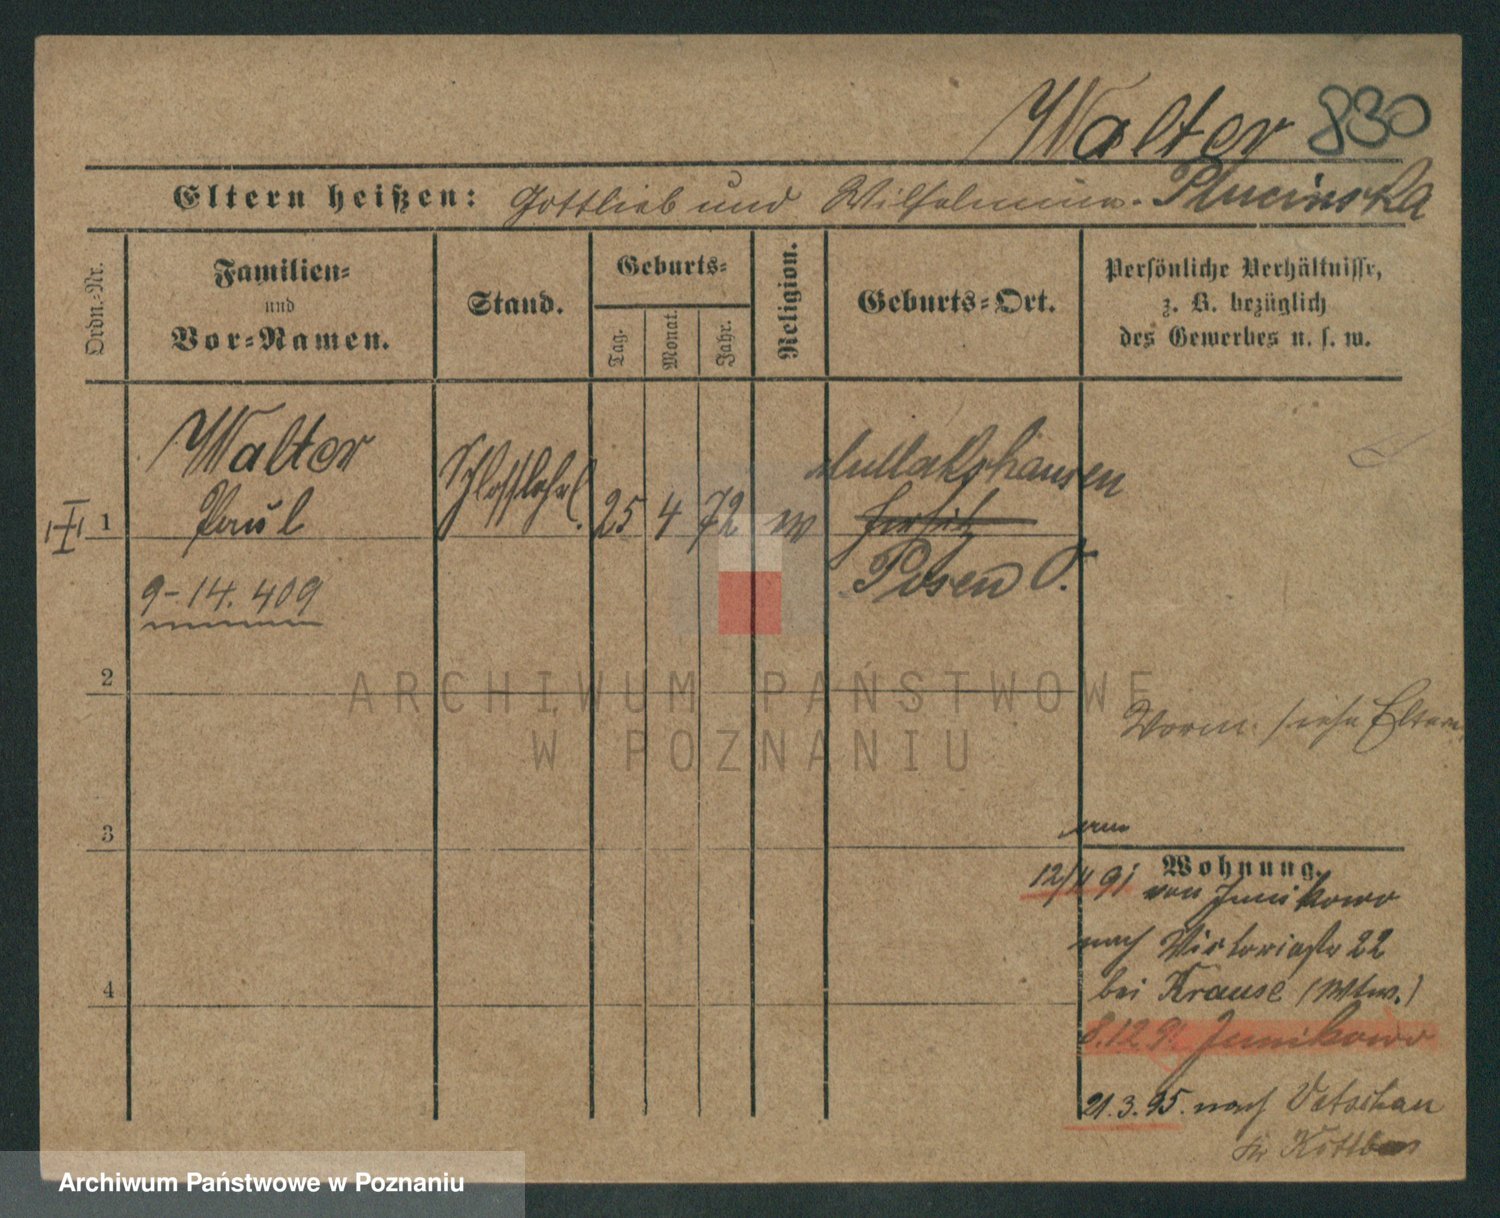 Walter 830
Eltern heißen: Gottlieb und Wilhelmine Plucinska
Ordn.-Nr.
Familien-
und
Vor-Namen.
Stand.
Geburts-
Tag.
Monat.
Jahr.
Religion.
Geburts-Ort.
Persönliche Verhältnisse,
z. B. bezüglich
des Gewerbes u. s. w.
1
Walter
Paul
25 4 72
Posen O.
9-14.409
2
Vorm. siehe Eltern
3
Wohnung.
12/4 91 von Junikowo
nach Victoriastr 22
bei Krause (Wtw.)
4
8.12.91 Junikowo
21.3.95. nach Vetschau
Kr Kottbus
ARCHIWUM PAŃSTWOWE
W POZNANIU
Archiwum Państwowe w Poznaniu